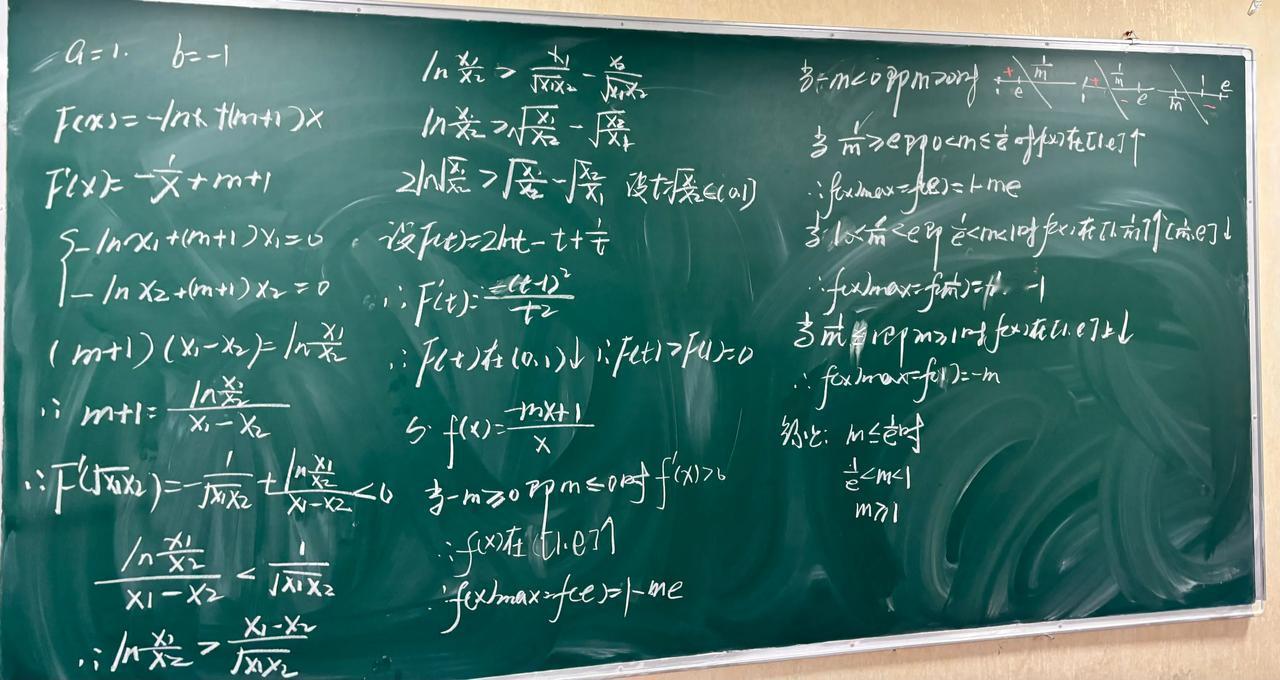 a=1. b=-1
F(x)=-lnx+(m+1)x
F'(x)=-1/x+m+1
{-lnx₁+(m+1)x₁=0
-lnx₂+(m+1)x₂=0
(m+1)(x₁-x₂)=ln x₁/x₂
∴ m+1=(ln x₁/x₂)/(x₁-x₂)
∴F'(√x₁x₂)=-1/√x₁x₂+(ln x₁/x₂)/(x₁-x₂)<0
(ln x₁/x₂)/(x₁-x₂)<1/√x₁x₂
∴ln x₁/x₂>(x₁-x₂)/√x₁x₂
ln x₁/x₂>x₁/√x₁x₂-x₂/√x₁x₂
ln x₁/x₂>√(x₁/x₂)-√(x₂/x₁)
2ln√(x₁/x₂)>√(x₁/x₂)-√(x₂/x₁) 设t=√(x₁/x₂)∈(0,1)
设F(t)=2lnt-t+1/t
∴F'(t)=-(t-1)²/t²
∴F(t)在(0,1)↓∴F(t)>F(1)=0
5. f(x)=(-mx+1)/x
当-m≥0即m≤0时f'(x)>0
∴f(x)在[1,e]↑
∴f(x)max=f(e)=1-me
当-m<0即m>0时
+ 1/m 1 e
+ 1/m - 1 e
1/m 1 e -
当1/m≥e即0<m≤1/e时f(x)在[1,e]↑
∴f(x)max=f(e)=1-me
当1<1/m<e即1/e<m<1时f(x)在[1,1/m]↑[1/m,e]↓
∴f(x)max=f(1/m)= -1
当1/m≤1即m≥1时f(x)在[1,e]上↓
∴f(x)max=f(1)=-m
综上: m≤1/e时
1/e<m<1
m≥1